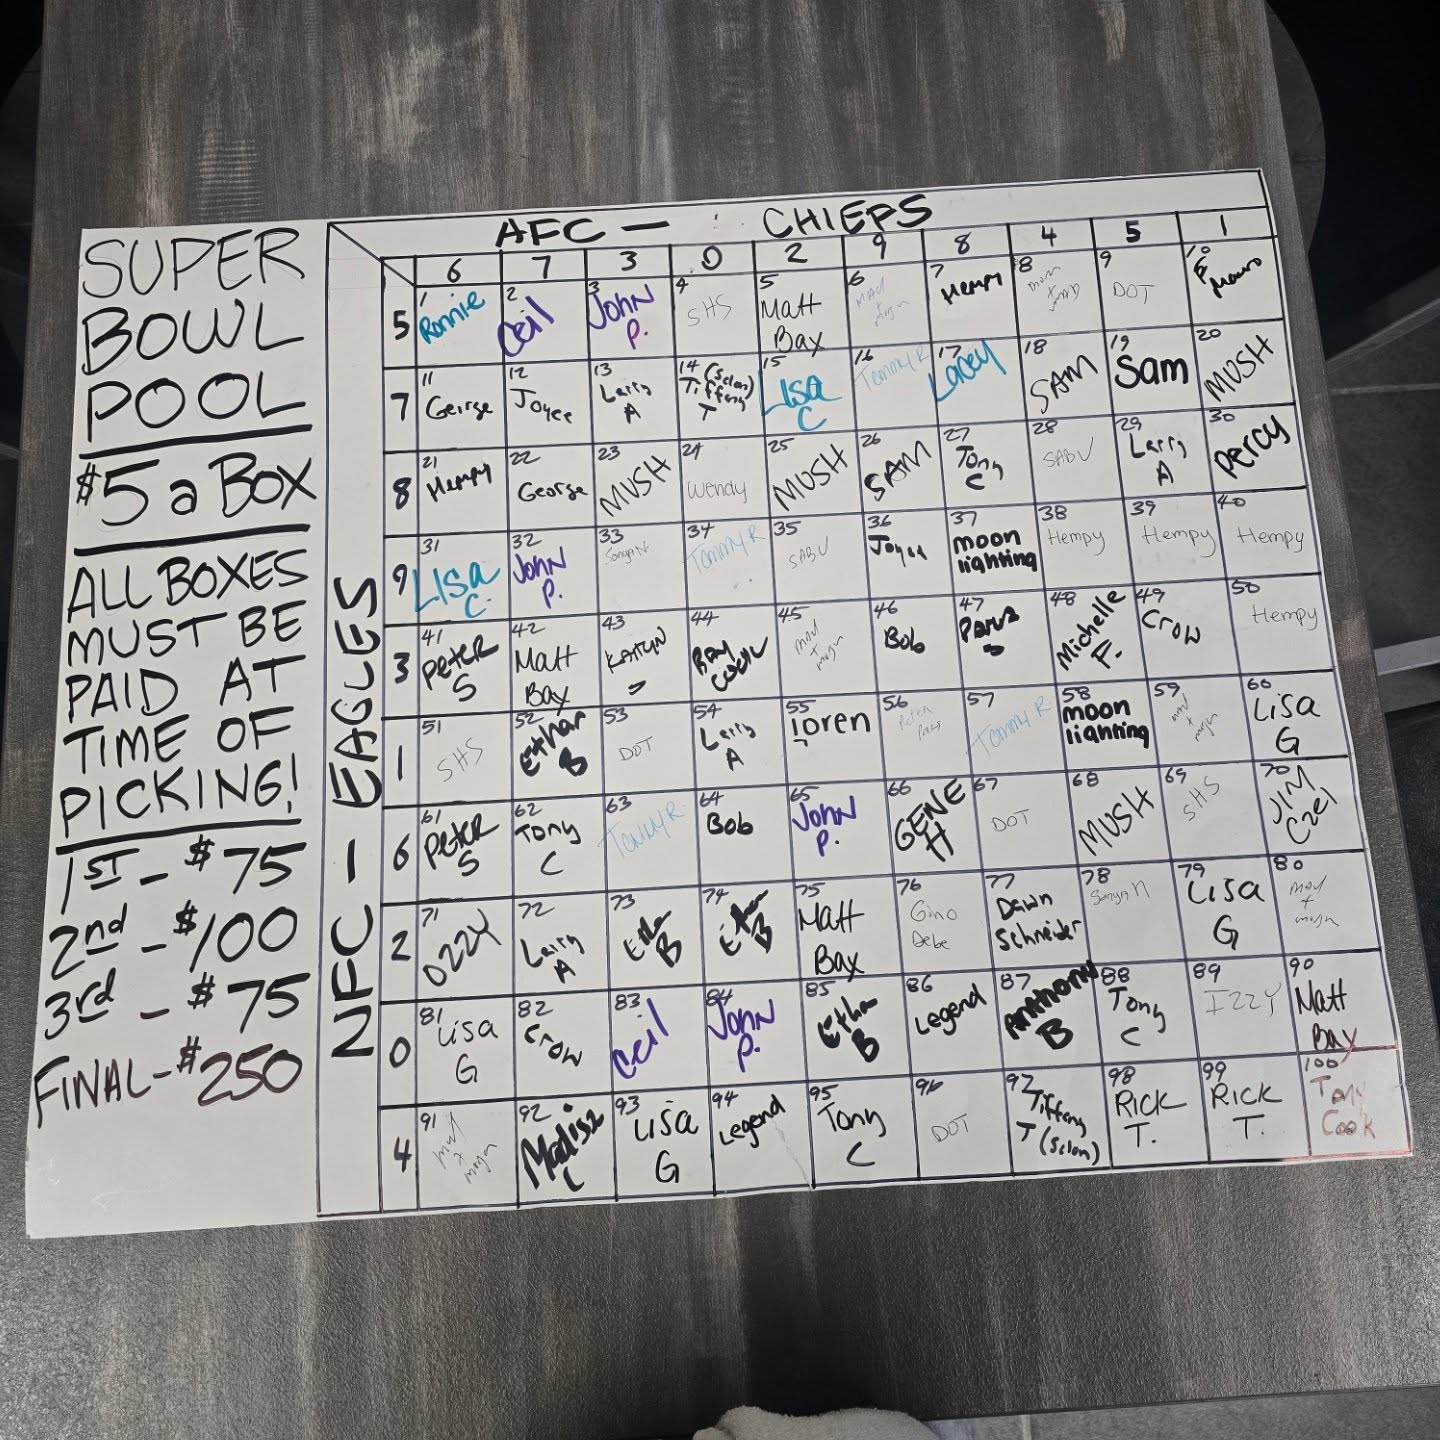 SUPER
BOWL
POOL
$5 a BOX
ALL BOXES
MUST BE
PAID AT
TIME OF
PICKING!
1ST - $75
2nd - $100
3rd - $75
FINAL - $250
AFC - CHIEFS
NFC - EAGLES
6 7 3 0 2 9 8 4 5 1
5 1 Ronnie 2 Ceil 3 JOHN P. 4 SHS 5 Matt Bax 6 7 Hempy 8 9 DOT 10
7 11 George 12 Joyce 13 Larry A 14 Tiffany T (Sclon) 15 LISA C 16 Tommy R 17 Lacey 18 SAM 19 Sam 20 MUSH
8 21 Hempy 22 George 23 MUSH 24 Wendy 25 MUSH 26 SAM 27 Tony C 28 SABU 29 Larry A 30 Percy
9 31 LISA C. 32 JOHN P. 33 34 Tommy R 35 SABU 36 Joyce 37 moon lighting 38 Hempy 39 Hempy 40 Hempy
3 41 PETER S 42 Matt Bax 43 KAITLYN 44 RAY 45 46 Bob 47 48 Michelle F. 49 Crow 50 Hempy
1 51 SHS 52 Ethan B 53 DOT 54 Larry A 55 Loren 56 57 Tommy R 58 moon lighting 59 60 LISA G
6 61 PETER S 62 Tony C 63 Tommy R 64 Bob 65 JOHN P. 66 GENE H 67 DOT 68 MUSH 69 SHS 70 JIM
2 71 OZZY 72 Larry A 73 Eth B 74 Ethan B 75 Matt Bax 76 Gino Debe 77 Dawn Schneider 78 79 LISA G 80
0 81 LISA G 82 Crow 83 Ceil 84 JOHN P. 85 Ethan B 86 Legend 87 Anthony B 88 Tony C 89 IZZY 90 Matt Bax
4 91 92 Madisz C 93 LISA G 94 Legend 95 Tony C 96 DOT 97 Tiffany T (Sclon) 98 RICK T. 99 RICK T. 100 Tony Cook